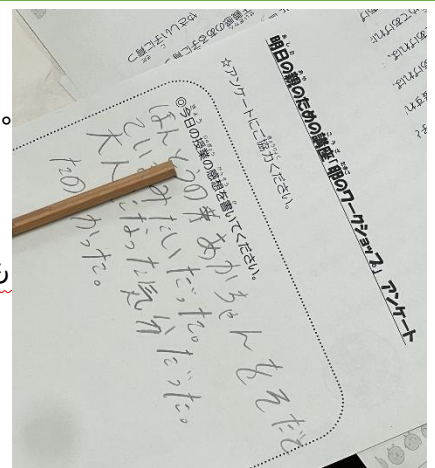 明日の親のための講座「卵のワークショップ」 アンケート
☆アンケートにご協力ください。
◎今日の授業の感想を書いてください。
ほんとうのあかちゃんをそだ
ているみたいだった。
大人になった気分だった。
たのしかった。
やさしい子に育つ
。
も